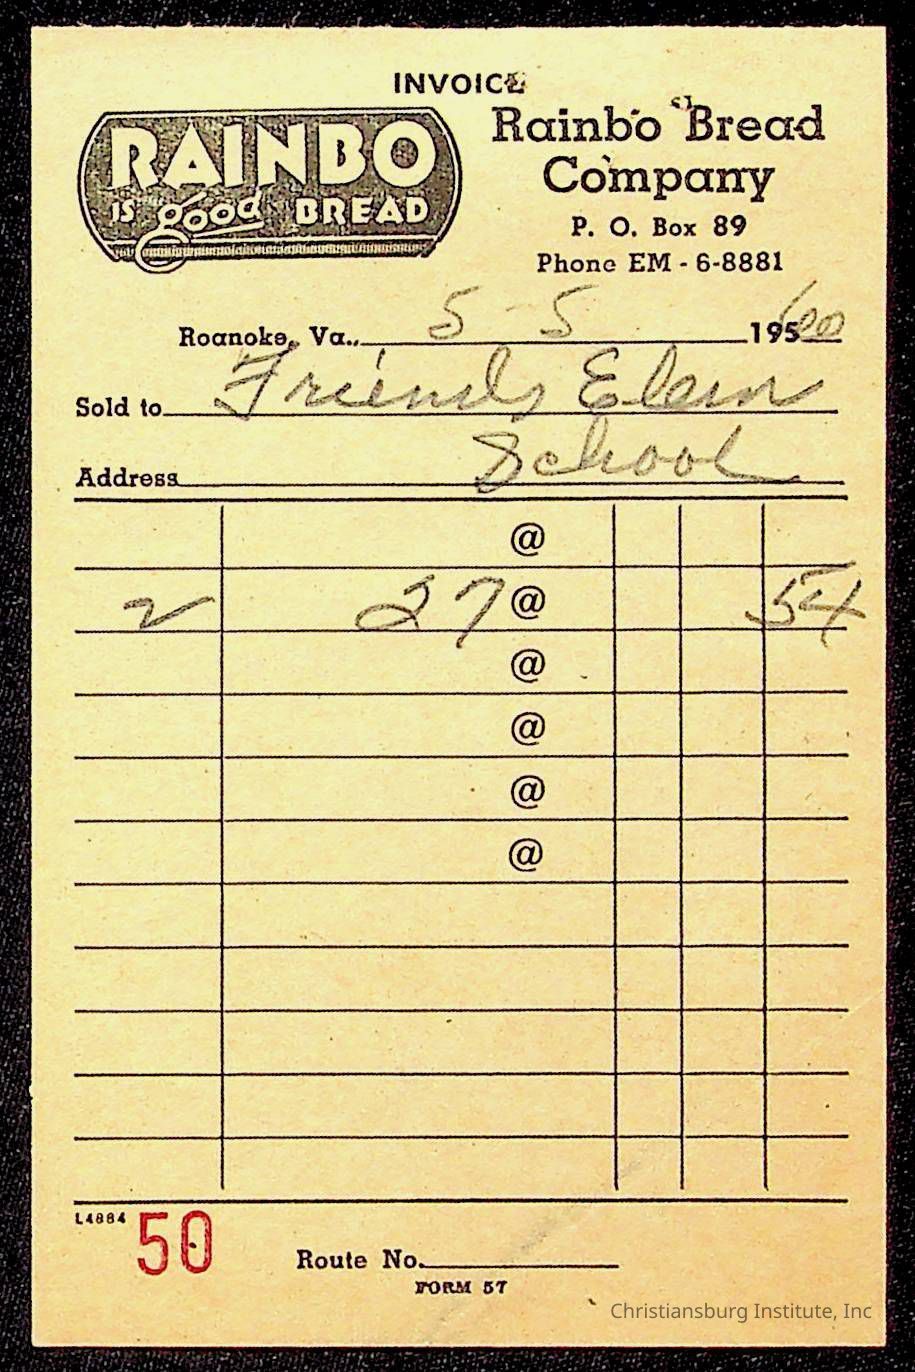 INVOICE
RAINBO
IS good BREAD
Rainbo Bread
Company
P. O. Box 89
Phone EM - 6-8881
Roanoke, Va., 5 5 195 60
Sold to Friends Elem
Address School
@
2 27 @ 54
@
@
@
@
L4884 50 Route No.
FORM 57
Christiansburg Institute, Inc